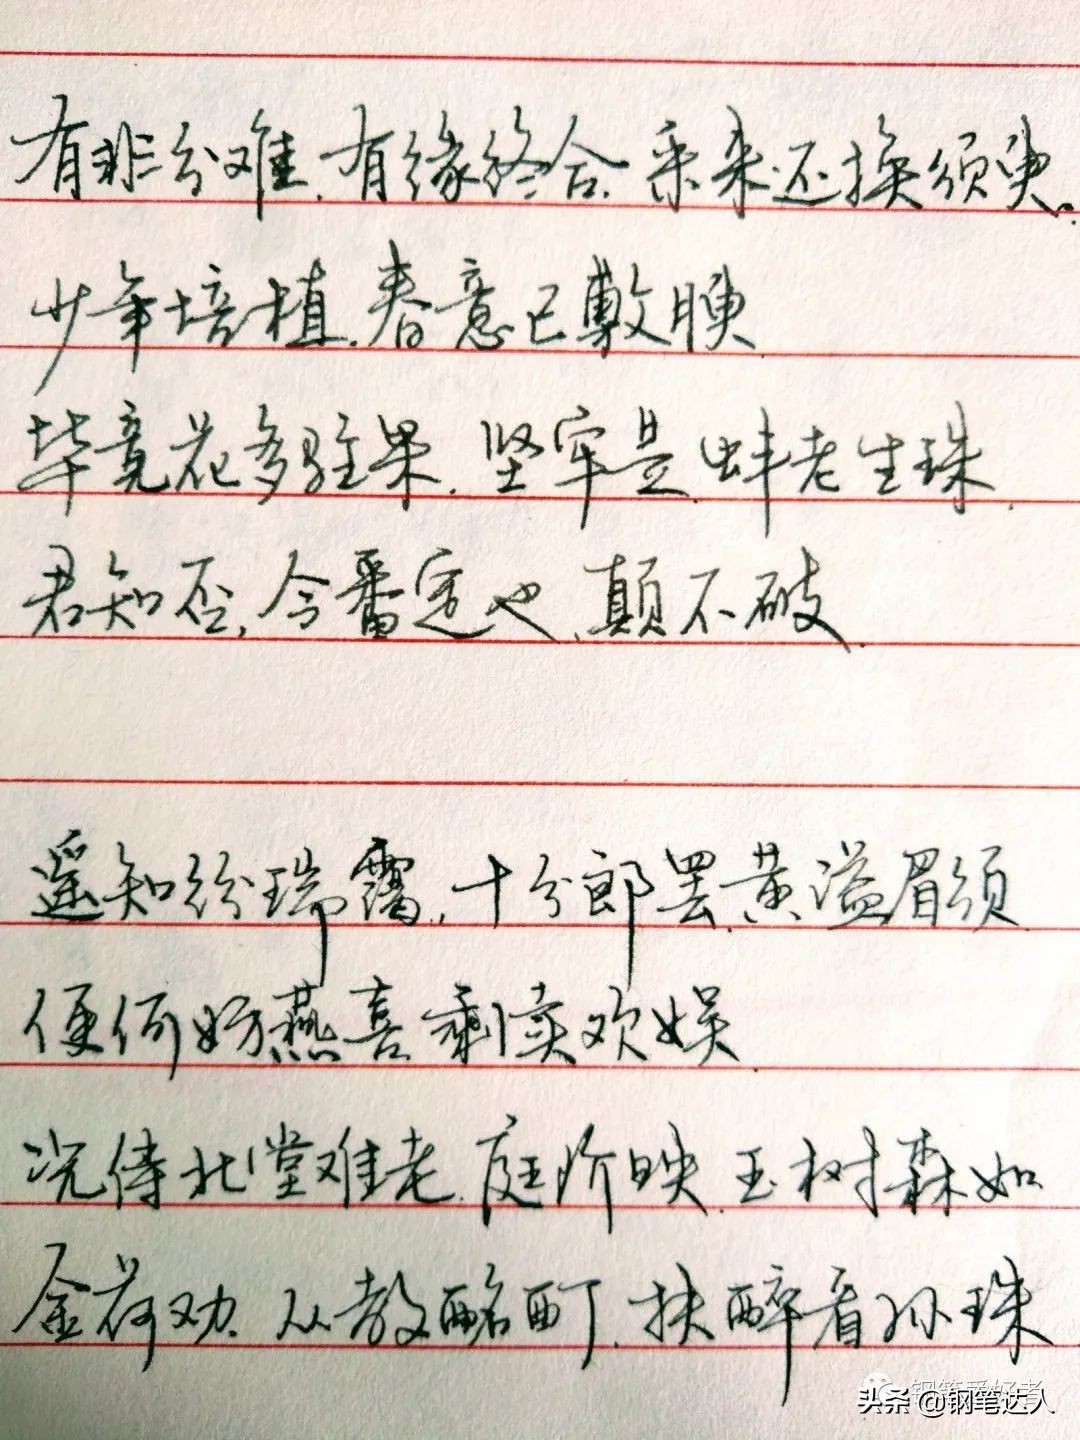 有非分难，有缘终合，采来还换须臾，
少年培植，春意已敷腴
毕竟花多驻果，坚牢是，蚌老生珠，
君知否，今番定也，颠不破，
遥知纷瑞霭，十分郎罢，黄溢眉须，
便何妨燕喜剩读欢娱，
况侍北堂难老，庭阶映，玉树森如
金荷劝，从教酩酊，扶醉看孙珠
钢笔爱好者
头条@钢笔达人